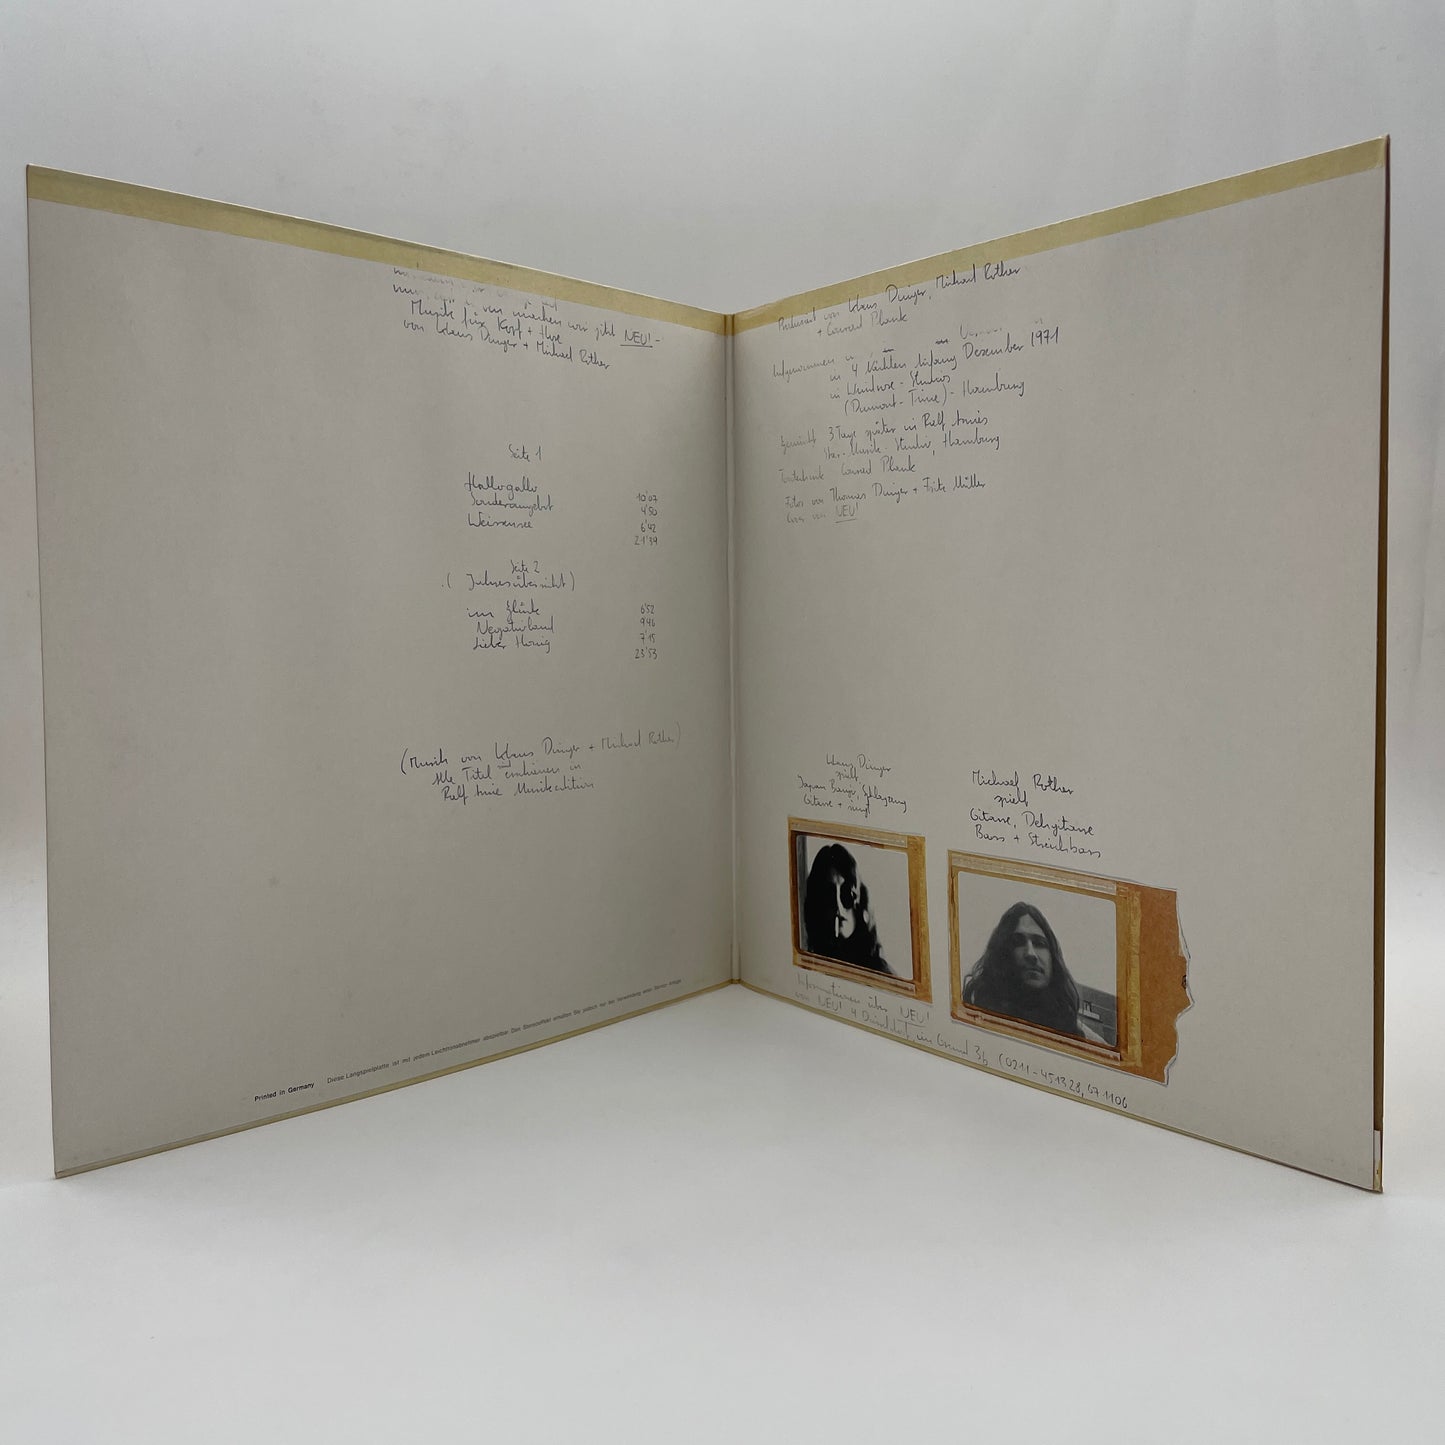 machen wir jetzt NEU! -
Musik für Kopf + Hose
von Klaus Dinger + Michael Rother
Seite 1
Hallogallo 10'07
Sonderangebot 4'50
Weissensee 6'42
21'39
Seite 2
(Jahresübersicht)
im Glück 6'52
Negativland 9'46
Lieber Honig 7'15
23'53
(Musik von Klaus Dinger + Michael Rother)
Alle Titel erschienen in
Ralf Arnie Musikedition
Printed in Germany Diese Langspielplatte ist mit jedem Leichttonabnehmer abspielbar. Den Stereoeffekt erhalten Sie jedoch nur bei Verwendung einer Stereo-Anlage.
Produziert von Klaus Dinger, Michael Rother
+ Conrad Plank
Aufgenommen
in 4 Nächten Anfang Dezember 1971
in Windrose-Studios
(Dumont-Time) - Hamburg
Gemischt 3 Tage später in Ralf Arnies
Star-Musik-Studio, Hamburg
Tontechnik Conrad Plank
Fotos von Thomas Dinger + Fritz Müller
Cover von NEU!
Klaus Dinger
spielt
Japan Banjo, Schlagzeug
Gitarre + singt
Michael Rother
spielt
Gitarre, Dehgitarre
Bass + Streichbass
Informationen über NEU!
von NEU! 4 Düsseldorf, im Grund 3b (0211-451328, 671106